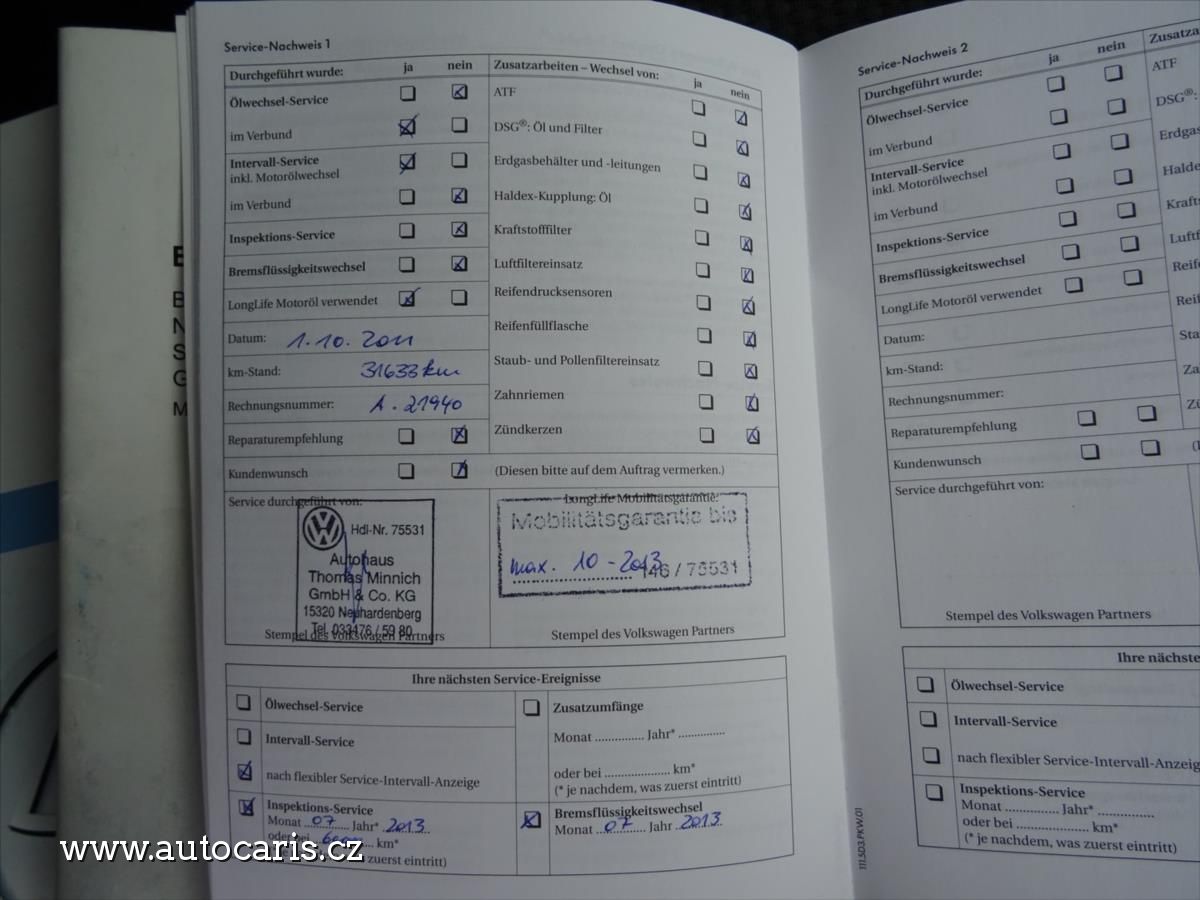 Service-Nachweis 1
Durchgeführt wurde: ja nein
Ölwechsel-Service
im Verbund
Intervall-Service
inkl. Motorölwechsel
im Verbund
Inspektions-Service
Bremsflüssigkeitswechsel
LongLife Motoröl verwendet
Datum: 1.10.2011
km-Stand: 31633 km
Rechnungsnummer: A.21940
Reparaturempfehlung
Kundenwunsch
Zusatzarbeiten – Wechsel von: ja nein
ATF
DSG®: Öl und Filter
Erdgasbehälter und -leitungen
Haldex-Kupplung: Öl
Kraftstofffilter
Luftfiltereinsatz
Reifendrucksensoren
Reifenfüllflasche
Staub- und Pollenfiltereinsatz
Zahnriemen
Zündkerzen
(Diesen bitte auf dem Auftrag vermerken.)
Service durchgeführt von:
Hdl-Nr. 75531
Autohaus
Thomas Minnich
GmbH & Co. KG
15320 Neuhardenberg
Tel. 033476 / 59 80
Stempel des Volkswagen Partners
LongLife Mobilitätsgarantie:
Mobilitätsgarantie bis
max. 10 - 2013
146 / 75531
Stempel des Volkswagen Partners
Ihre nächsten Service-Ereignisse
Ölwechsel-Service
Intervall-Service
nach flexibler Service-Intervall-Anzeige
Inspektions-Service
Monat 07 Jahr* 2013
oder bei km*
(* je nachdem, was zuerst eintritt)
Zusatzumfänge
Monat ............... Jahr* ..............
oder bei .................... km*
(* je nachdem, was zuerst eintritt)
Bremsflüssigkeitswechsel
Monat 07 Jahr 2013
Service-Nachweis 2
Durchgeführt wurde: ja nein
Ölwechsel-Service
im Verbund
Intervall-Service
inkl. Motorölwechsel
im Verbund
Inspektions-Service
Bremsflüssigkeitswechsel
LongLife Motoröl verwendet
Datum:
km-Stand:
Rechnungsnummer:
Reparaturempfehlung
Kundenwunsch
Zusatza
ATF
DSG®:
Erdgas
Haldex
Krafts
Luftf
Reife
Rei
Sta
Za
Zü
Service durchgeführt von:
Stempel des Volkswagen Partners
Ihre nächste
Ölwechsel-Service
Intervall-Service
nach flexibler Service-Intervall-Anzeig
Inspektions-Service
Monat ................ Jahr* ................
oder bei ...................... km*
(* je nachdem, was zuerst eintritt)
111.5D3.PKW.01
www.autocaris.cz